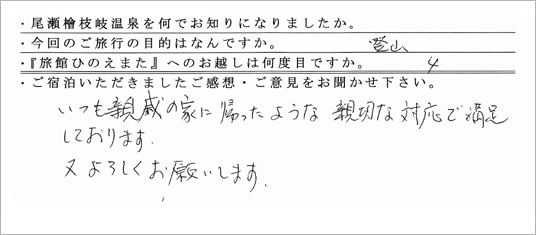 ・尾瀬檜枝岐温泉を何でお知りになりましたか。
・今回のご旅行の目的はなんですか。 登山
・『旅館ひのえまた』へのお越しは何度目ですか。 4
・ご宿泊いただきましたご感想・ご意見をお聞かせ下さい。
いつも親戚の家に帰ったような親切な対応で満足
しております.
又よろしくお願いします.